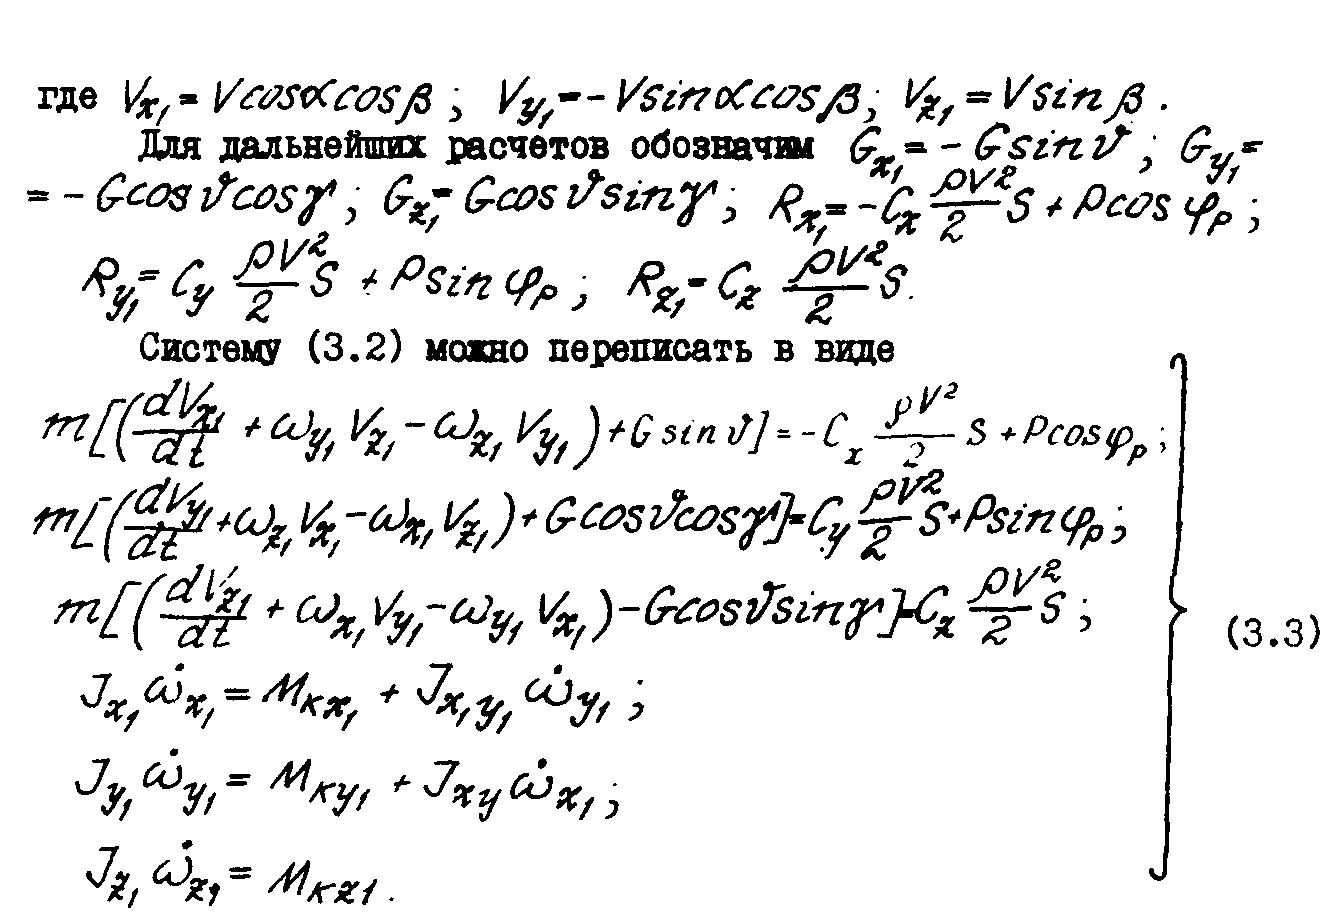 где V_{x_1} = V cos α cos β ; V_{y_1} = - V sin α cos β ; V_{z_1} = V sin β .
Для дальнейших расчетов обозначим G_{x_1} = - G sin ϑ ; G_{y_1} =
= - G cos ϑ cos γ ; G_{z_1} = G cos ϑ sin γ ; R_{x_1} = - C_x \frac{ρV^2}{2} S + P cos φ_p ;
R_{y_1} = C_y \frac{ρV^2}{2} S + P sin φ_p ; R_{z_1} = C_z \frac{ρV^2}{2} S.
Систему (3.2) можно переписать в виде
m[(\frac{dV_{x_1}}{dt} + ω_{y_1} V_{z_1} - ω_{z_1} V_{y_1}) + G sin ϑ] = - C_x \frac{ρV^2}{2} S + P cos φ_p ;
m[(\frac{dV_{y_1}}{dt} + ω_{z_1} V_{x_1} - ω_{x_1} V_{z_1}) + G cos ϑ cos γ] = C_y \frac{ρV^2}{2} S + P sin φ_p ;
m[(\frac{dV_{z_1}}{dt} + ω_{x_1} V_{y_1} - ω_{y_1} V_{x_1}) - G cos ϑ sin γ] = C_z \frac{ρV^2}{2} S ;
(3.3)
J_{x_1} ω̇_{x_1} = M_{кx_1} + J_{x_1 y_1} ω̇_{y_1} ;
J_{y_1} ω̇_{y_1} = M_{кy_1} + J_{xy} ω̇_{x_1} ;
J_{z_1} ω̇_{z_1} = M_{кz1} .